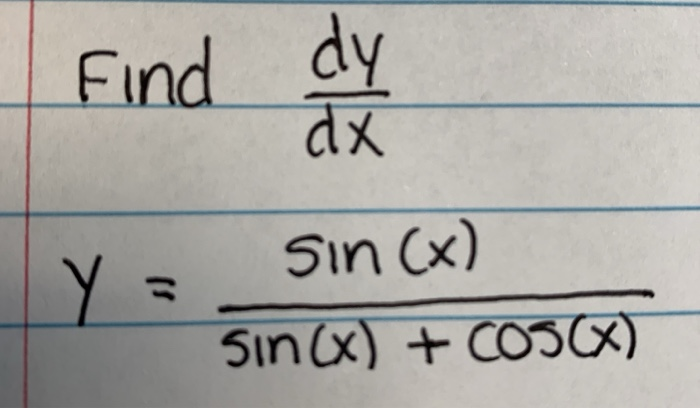 Find dy/dx
y = sin(x)/(sin(x) + cos(x))